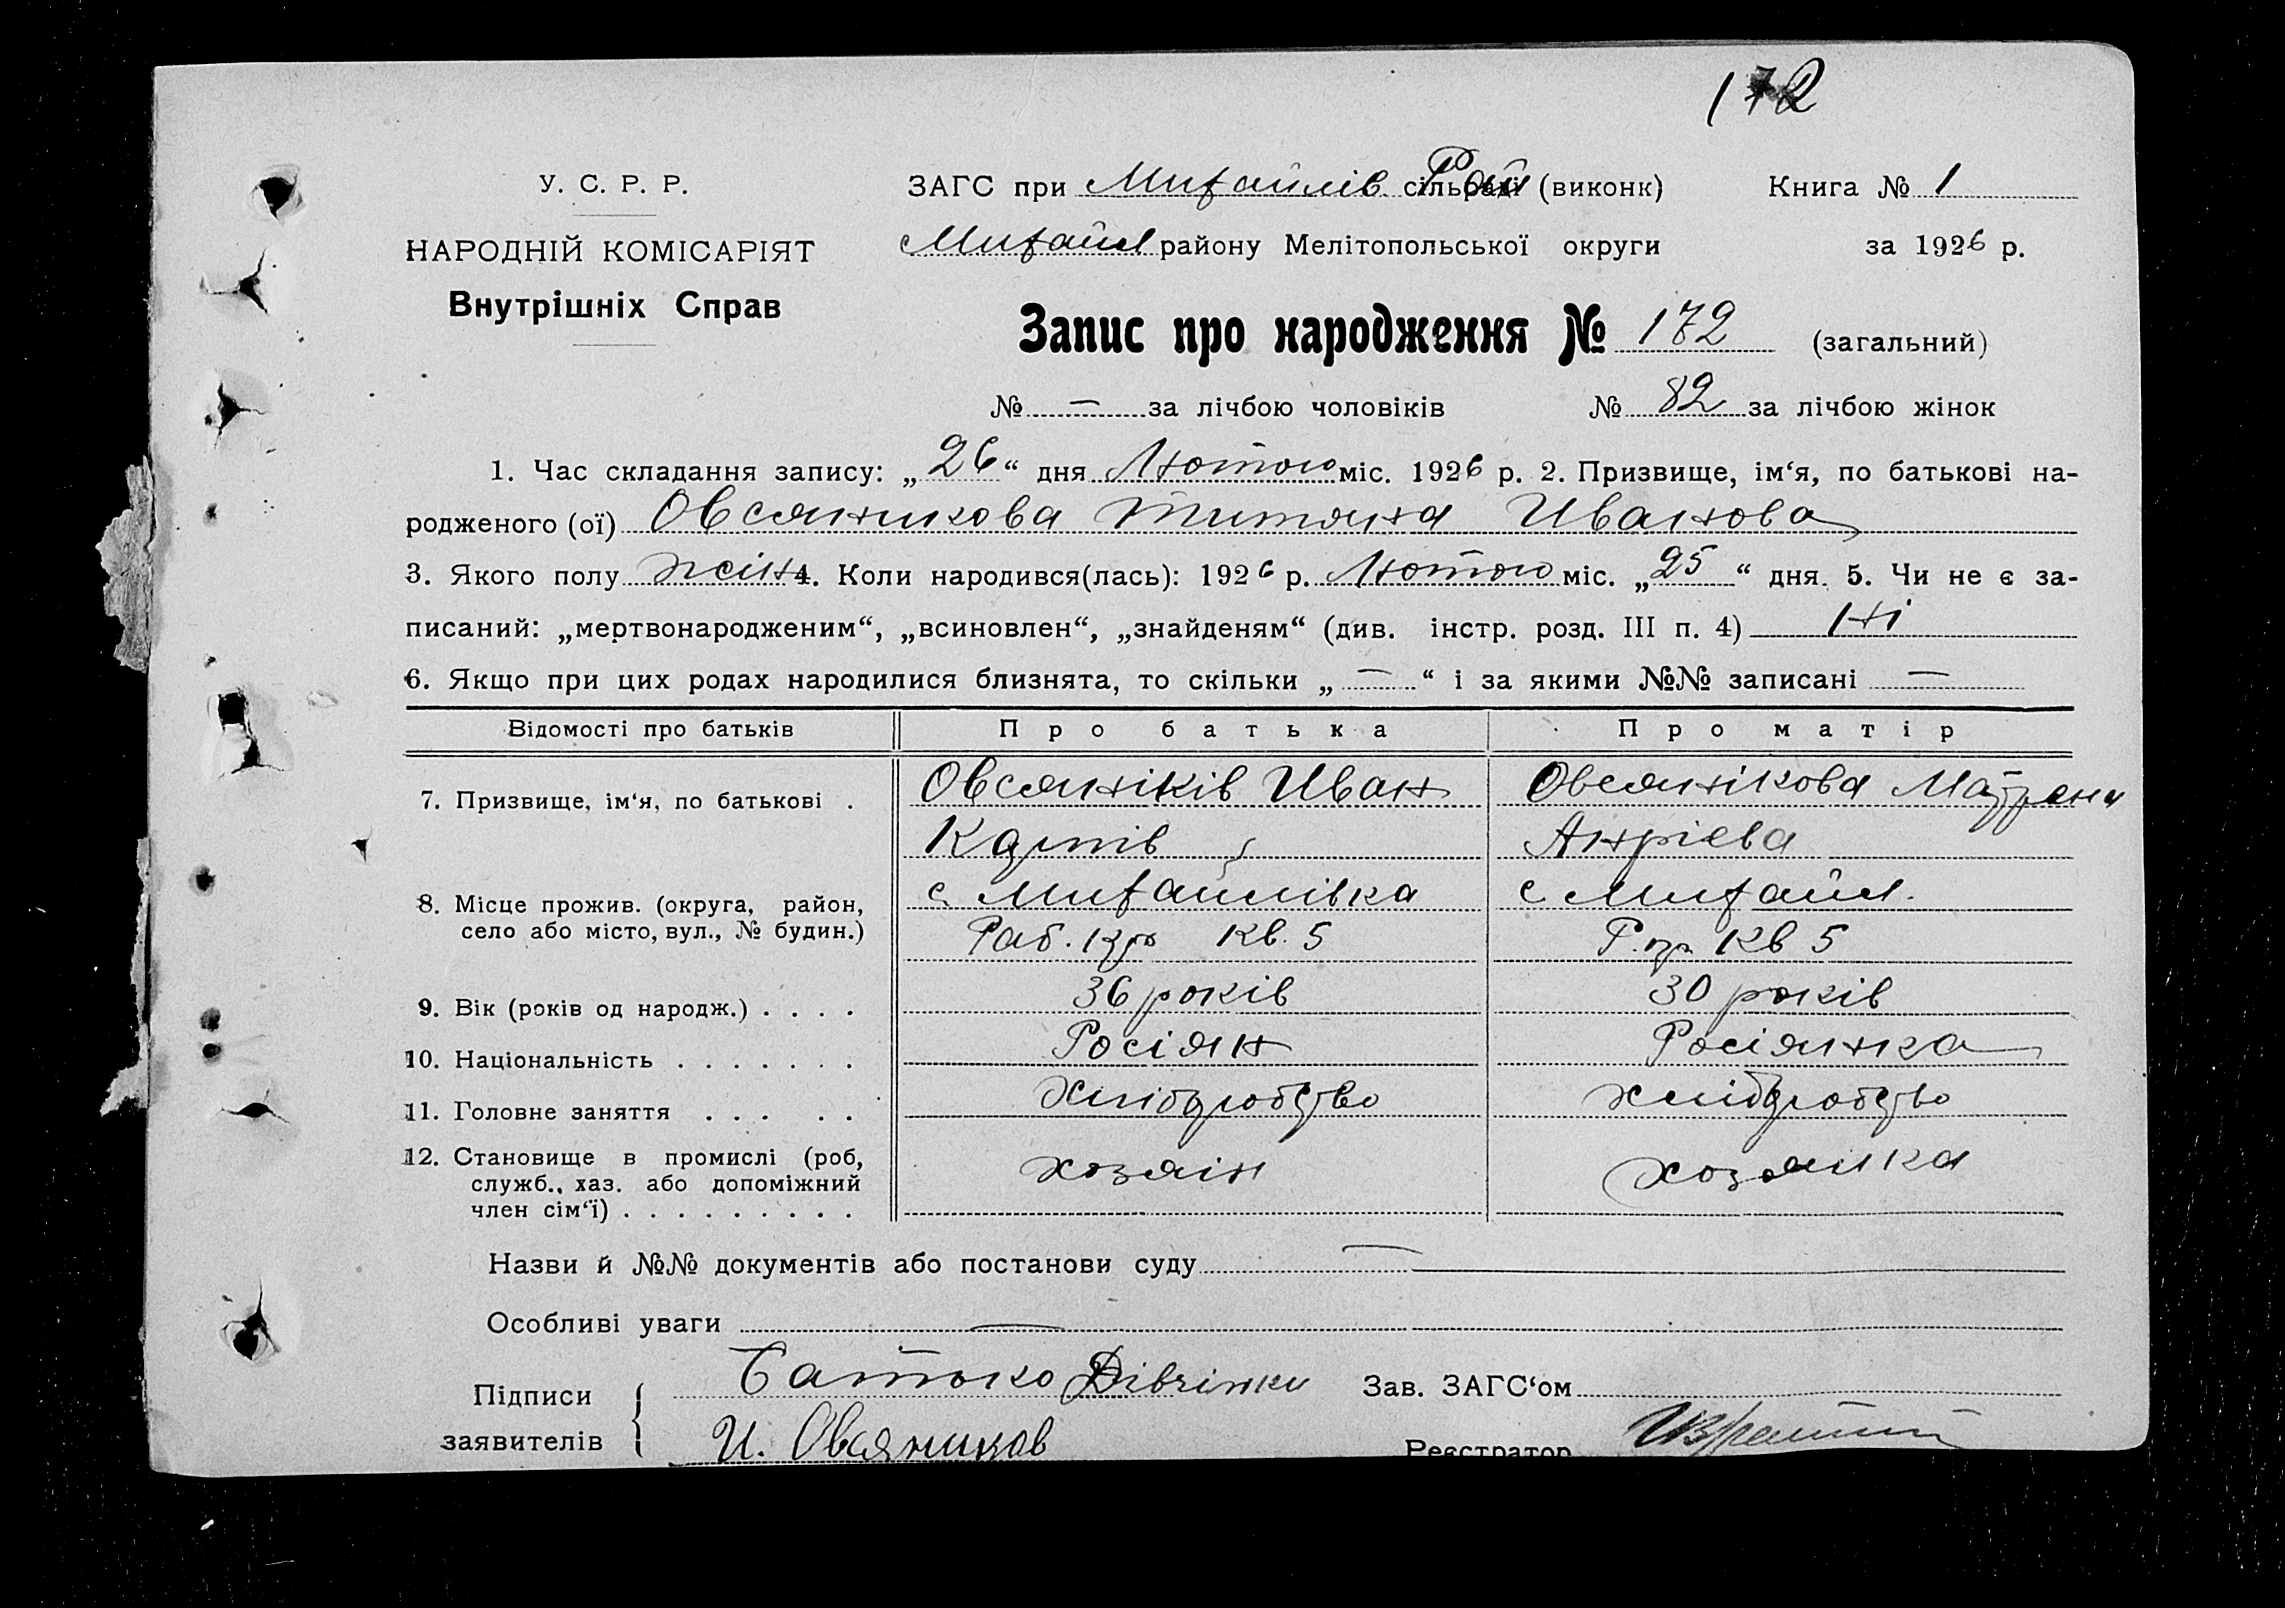 172
У. С. Р. Р.
НАРОДНІЙ КОМІСАРІЯТ
Внутрішніх Справ
ЗАГС при Михайлів. сільради Рай (виконк) Книга № 1
Михайл району Мелітопольської округи за 1926 р.
Запис про народження № 172 (загальний)
№ — за лічбою чоловіків № 82 за лічбою жінок
1. Час складання запису: „26“ дня Лютого міс. 1926 р. 2. Призвище, ім‘я, по батькові на-
родженого (ої) Овсяникова Титяна Иванова
3. Якого полу жін 4. Коли народився(лась): 1926 р. Лютого міс. „25“ дня. 5. Чи не є за-
писаний: „мертвонародженим“, „всиновлен“, „знайденям“ (див. інстр. розд. III п. 4) Ні
6. Якщо при цих родах народилися близнята, то скільки „—“ і за якими №№ записані —
Відомості про батьків Про батька Про матір
7. Призвище, ім‘я, по батькові . Овсяніків Иван Овсянікова Матрена
Андріева
8. Місце прожив. (округа, район, с Михайлівка с Михайл.
село або місто, вул., № будин.) Раб. Кв. 5 Р. Кв 5
9. Вік (років од народж.) . . . . 36 років 30 років
10. Національність . . . . . . . Росіян Росіянка
11. Головне заняття . . . . . Хліборобство Хліборобство
12. Становище в промислі (роб, хозяін хозяйка
служб., хаз. або допоміжний
член сім‘ї) . . . . . . . . .
Назви й №№ документів або постанови суду —
Особливі уваги —
Підписи Батько Дівчінки Зав. ЗАГС‘ом
заявителів И. Овсяников Реєстратор